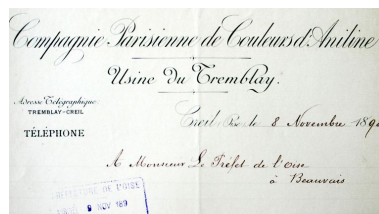 Compagnie Parisienne de Couleurs d'Aniline
Usine du Tremblay.
Adresse Télégraphique
TREMBLAY-CREIL
TÉLÉPHONE
Creil, Oise le 8 Novembre 189
A Monsieur Le Préfet de l'Oise
à Beauvais
PRÉFECTURE DE L'OISE
9 NOV 189